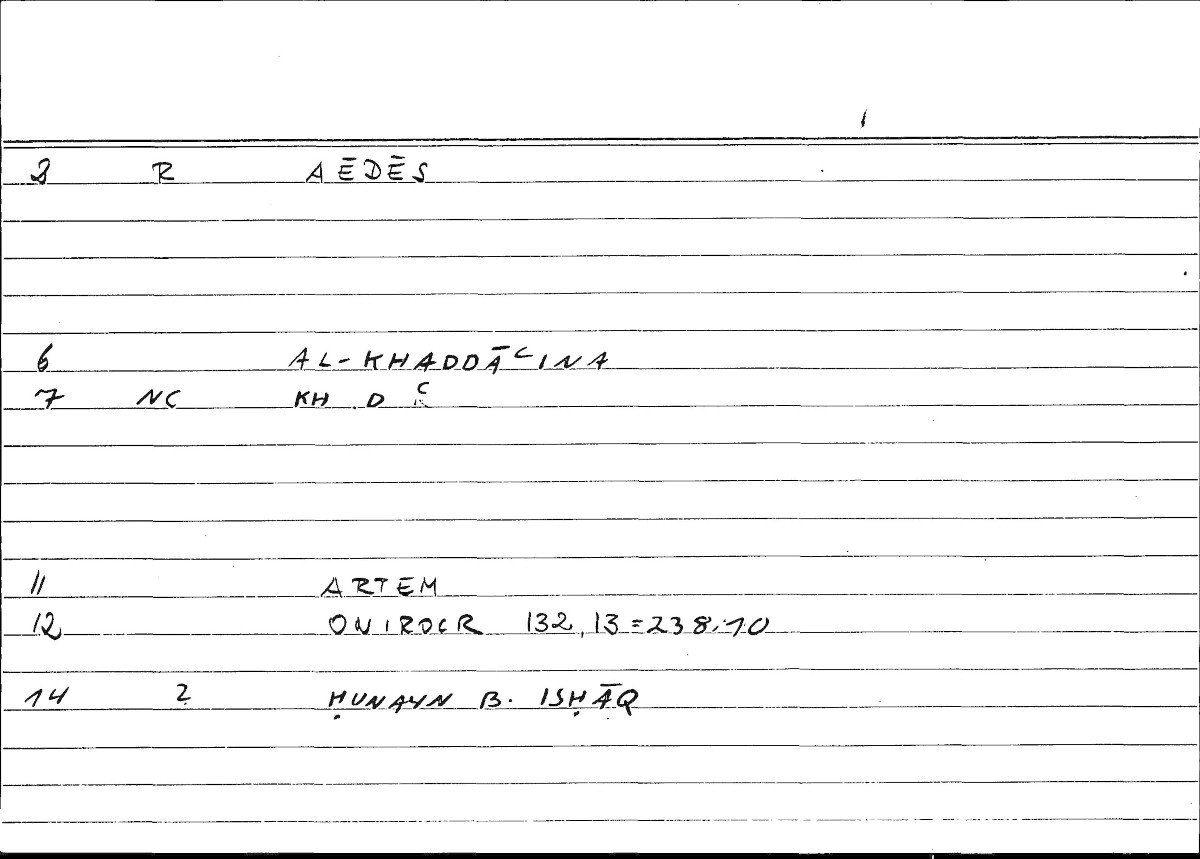 1
3 R AĒDĒS
6 AL-KHADDĀʿINA
7 NC KH D ʿ
11 ARTEM
12 ONIROCR 132,13=238.10
14 2 ḤUNAYN B. ISḤĀQ